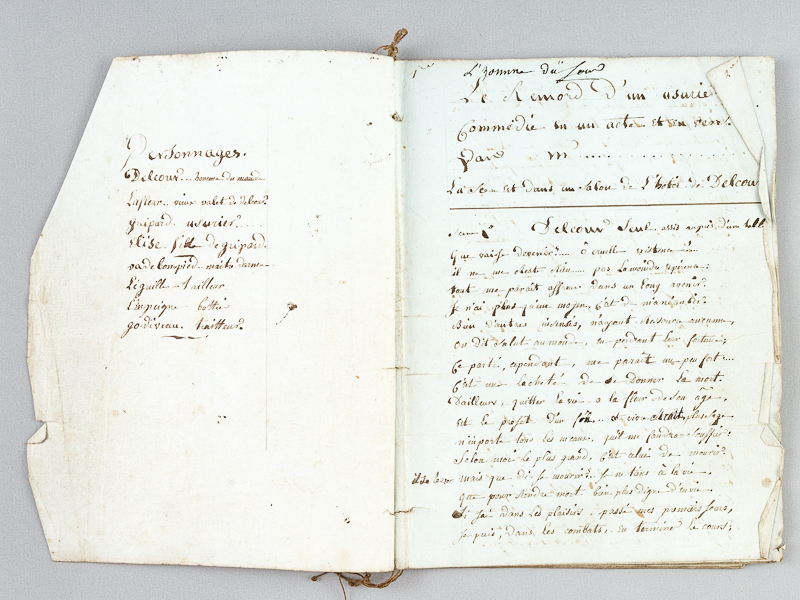 Personnages.
Delcour.. homme du monde
Lafleur.. vieux valet de delcour
Guipard. usurier..
Elise fille de guipard.
va de bon pied. maître danse
Léguille. tailleur
L'inpeigne bottier
godiveau. traitteur.
1er
L'homme du jour
Le Remord d'un usurier
Commedie en un acte et en vers.
Par M........
La scene est dans un salon de l'hotel de Delcour
Scene 1e Delcour Seul. assis auprès d'une table
Que vais-je devenir?.... ô cruelle existence!...
il ne me reste rien.... pas la moindre espérance;
tout me parait affreux dans un long avenir.
Je n'ai plus qu'un moyen, c'est de m'anéantir.
Bien d'autres insensés, n'ayant ressource aucune,
On dit salut au monde, en perdant leur fortune;
Ce parti, cependant, me parait un peu fort...
C'est une lacheté de se donner la mort.
D'ailleurs, quitter la vie a la fleur de son âge,
est le projet d'un fou.. et vivre est plus sage
n'importe tous les meaux, qu'il me faudra souffrir:
Selon moi le plus grand, c'est celui de mourir.
il se leve mais que dis-je mourir? je tiens à la vie
que pour rendre mort bien plus digne d'envie
Si j'ai dans les plaisirs, passé mes premiers jours,
Je puis, dans les combats, en terminer le cours;